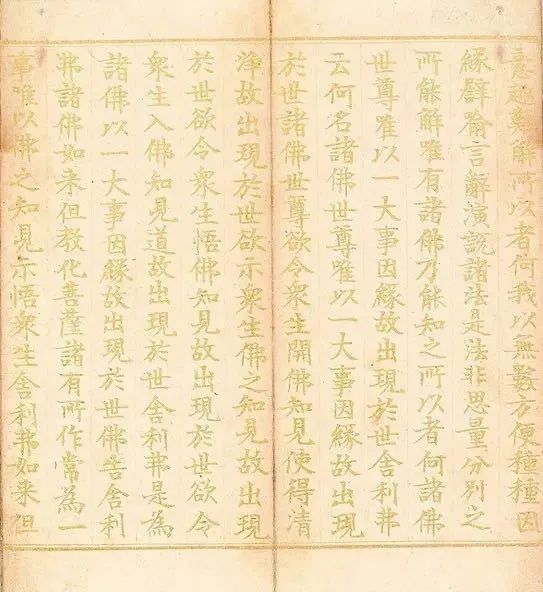 意趣難解所以者何我以無數方便種種因
緣譬喻言辭演說諸法是法非思量分別之
所能解唯有諸佛乃能知之所以者何諸佛
世尊唯以一大事因緣故出現於世舍利弗
云何名諸佛世尊唯以一大事因緣故出現
於世諸佛世尊欲令衆生開佛知見使得清
淨故出現於世欲示衆生佛之知見故出現
於世欲令衆生悟佛知見故出現於世欲令
衆生入佛知見道故出現於世舍利弗是為
諸佛以一大事因緣故出現於世佛告舍利
弗諸佛如来但教化菩薩諸有所作常為一
事唯以佛之知見示悟衆生舍利弗如来但